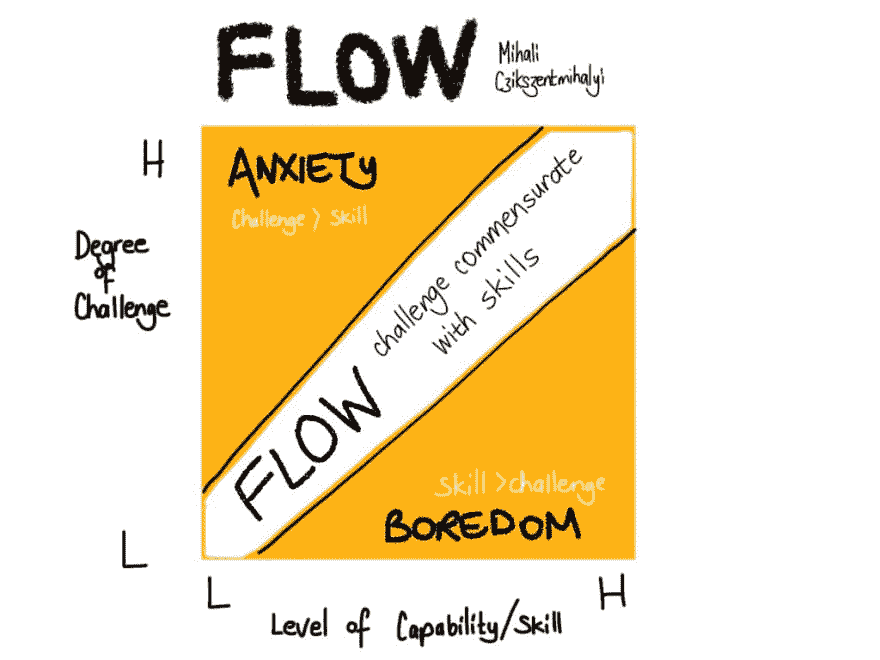 FLOW
Mihali
Czikszentmihalyi
H
ANXIETY
Challenge > Skill
Degree
of
Challenge
challenge commensurate
with skills
FLOW
Skill > challenge
BOREDOM
L
L
H
Level of Capability/Skill